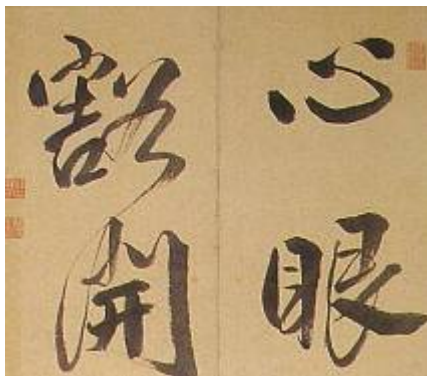 心眼
豁開